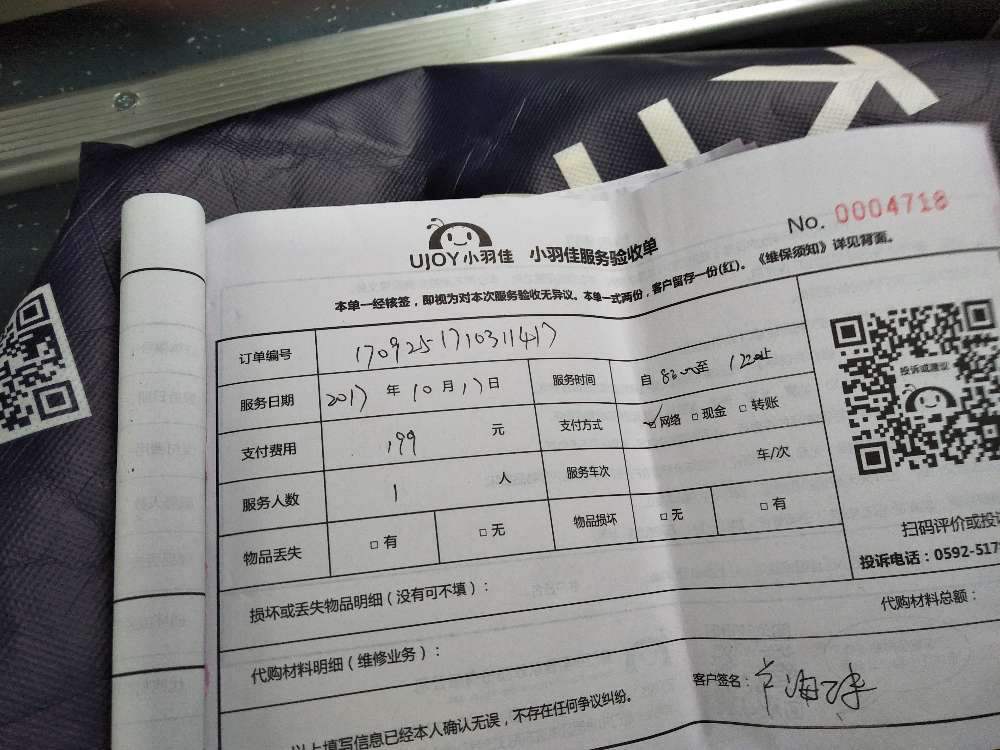 No. 0004718
UJOY小羽佳 小羽佳服务验收单
本单一经核签，即视为对本次服务验收无异议。本单一式两份，客户留存一份(红)。《维保须知》详见背面。
订单编号 1709251710311417
服务日期 2017 年 10 月 17 日 服务时间 自 8:00 至 12:00
支付费用 199 元 支付方式 ☑网络 □现金 □转账
服务人数 1 人 服务车次 车/次
物品丢失 □有 □无 物品损坏 □无 □有
投诉或建议
扫码评价或投
投诉电话：0592-517
损坏或丢失物品明细（没有可不填）：
代购材料总额：
代购材料明细（维修业务）：
客户签名：
以上填写信息已经本人确认无误，不存在任何争议纠纷。